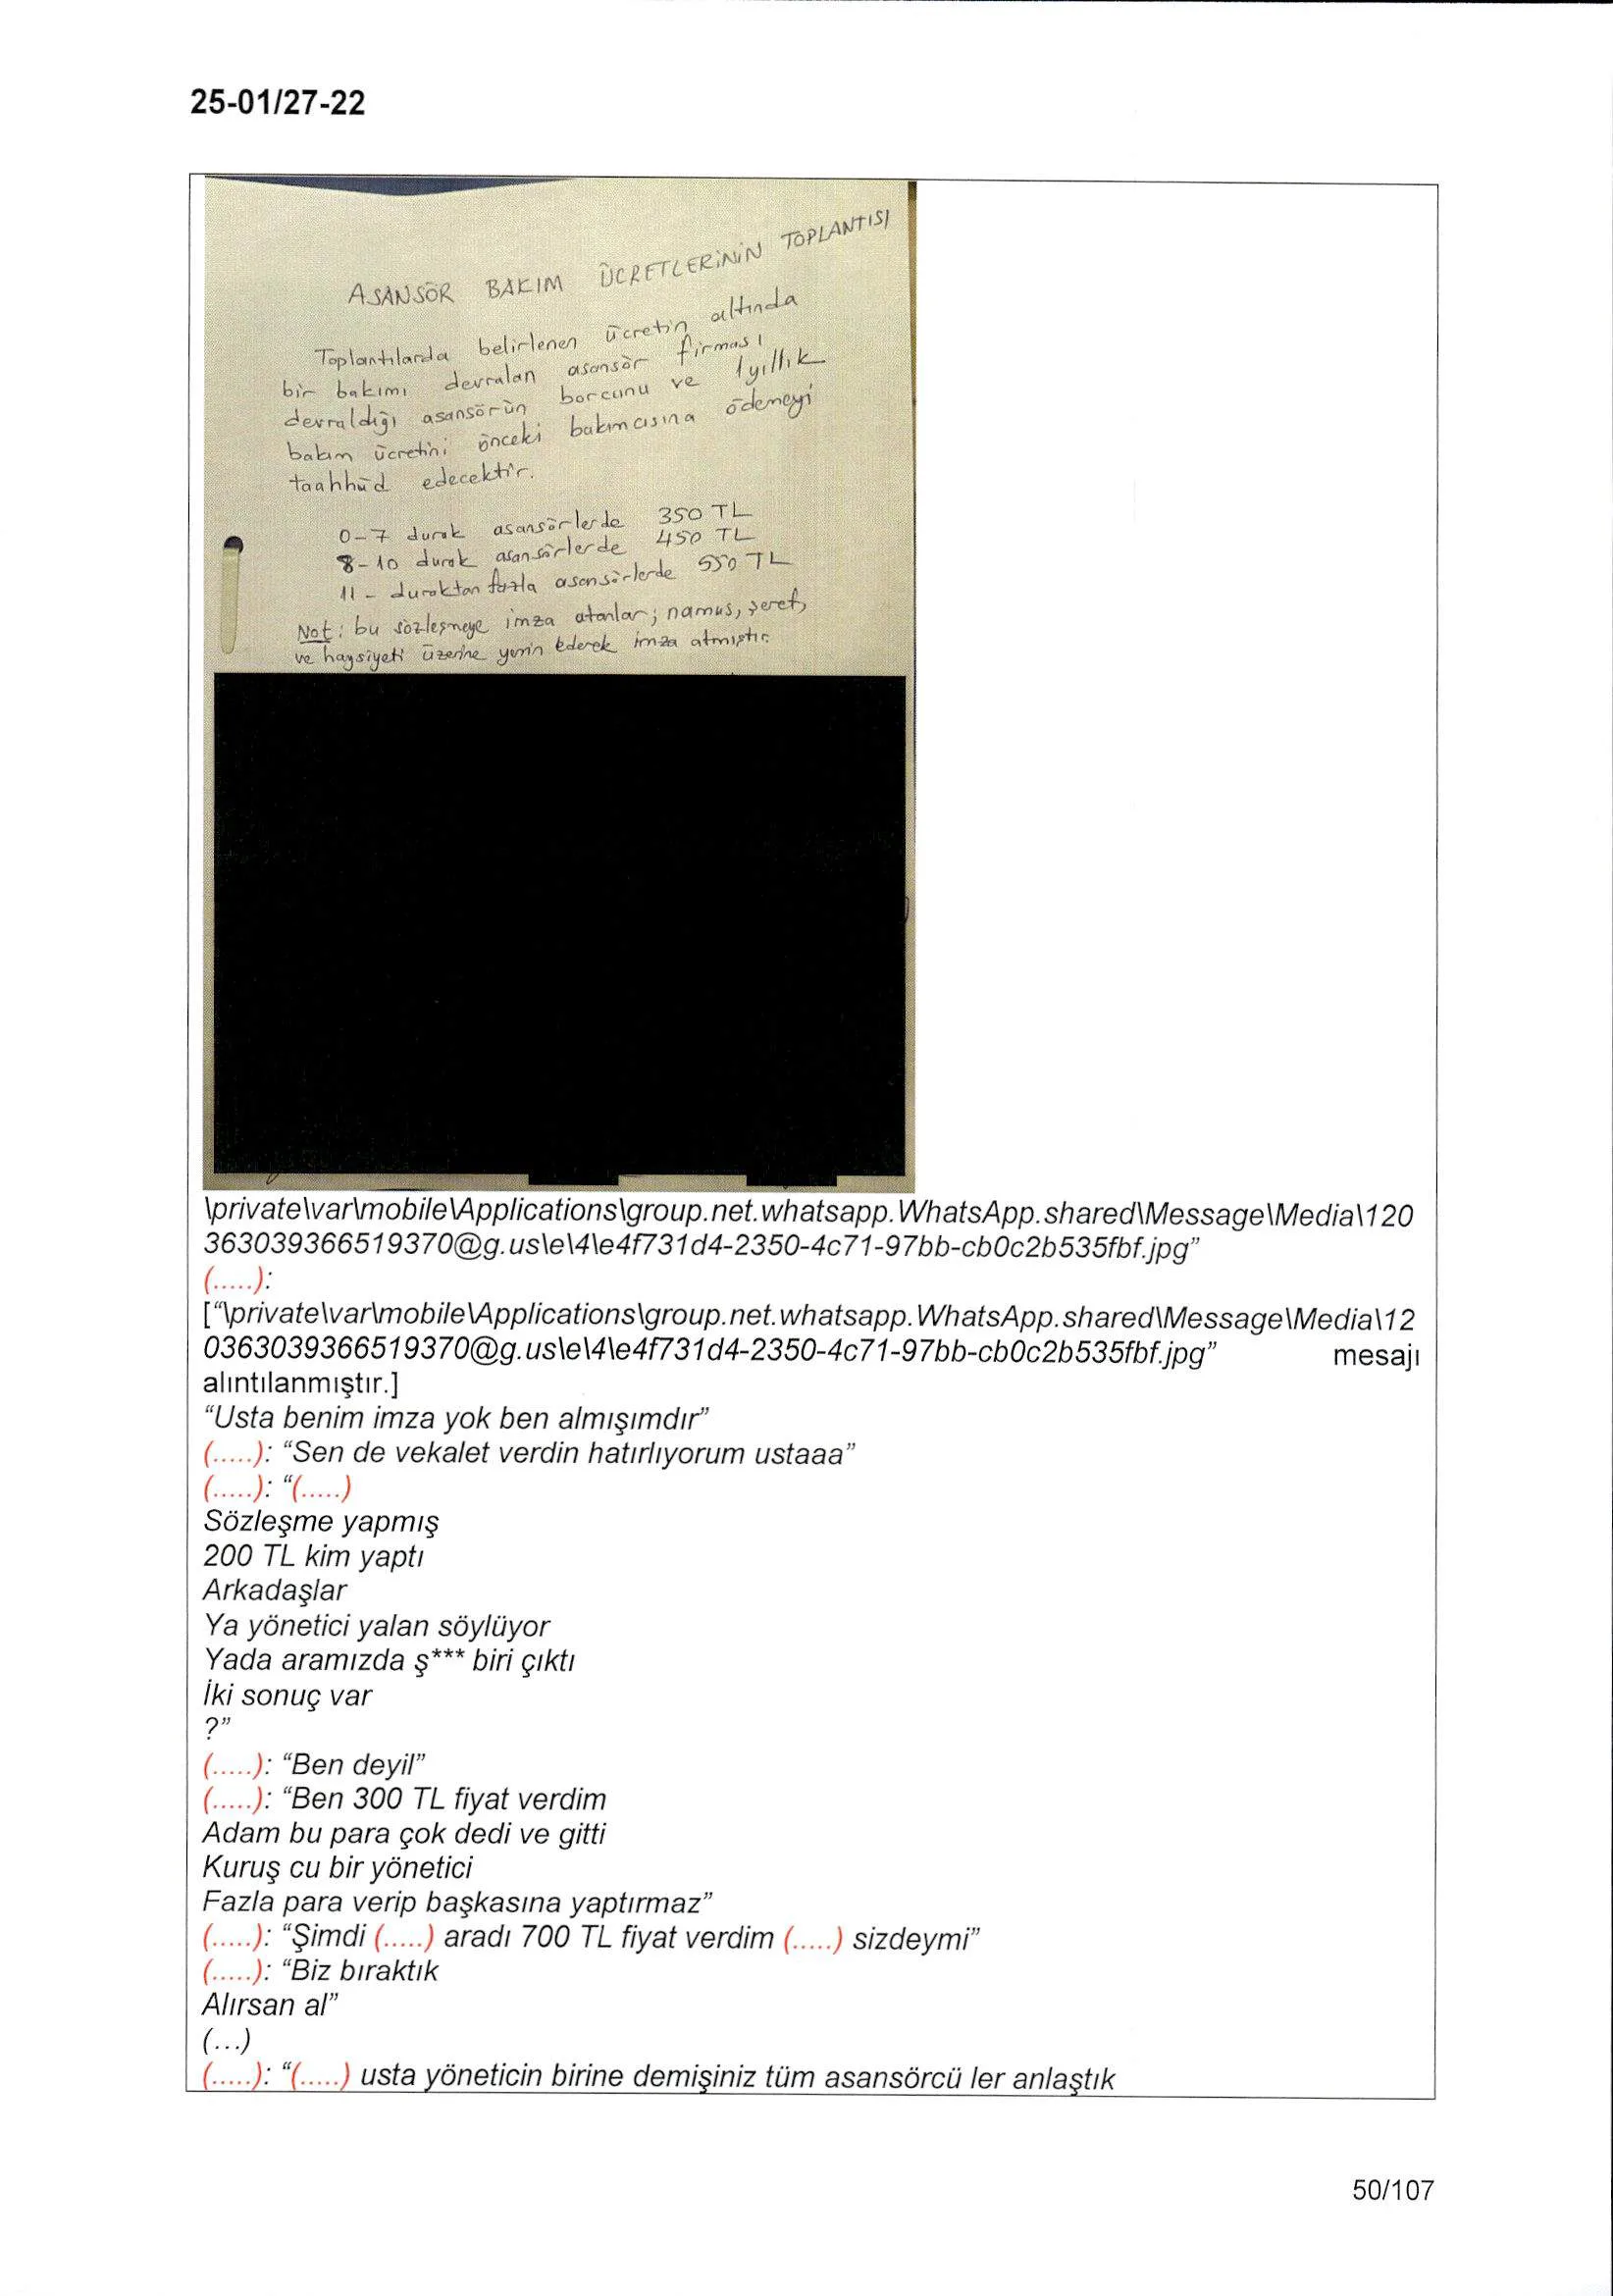 25-01/27-22
ASANSÖR BAKIM ÜCRETLERİNİN TOPLANTISI
Toplantılarda belirlenen ücretin altında
bir bakımı devralan asansör firması
devraldığı asansörün borcunu ve 1 yıllık
bakım ücretini önceki bakımcısına ödemeyi
taahhüd edecektir.
0-7 durak asansörlerde 350 TL
8-10 durak asansörlerde 450 TL
11- duraktan fazla asansörlerde 550 TL
Not: bu sözleşmeye imza atanlar; namus, şeref,
ve haysiyeti üzerine yemin ederek imza atmıştır.
\private\var\mobile\Applications\group.net.whatsapp.WhatsApp.shared\Message\Media\120
363039366519370@g.us\e\4\e4f731d4-2350-4c71-97bb-cb0c2b535fbf.jpg”
(.....):
[“\private\var\mobile\Applications\group.net.whatsapp.WhatsApp.shared\Message\Media\12
0363039366519370@g.us\e\4\e4f731d4-2350-4c71-97bb-cb0c2b535fbf.jpg” mesajı
alıntılanmıştır.]
“Usta benim imza yok ben almışımdır”
(.....): “Sen de vekalet verdin hatırlıyorum ustaaa”
(.....): “(.....)
Sözleşme yapmış
200 TL kim yaptı
Arkadaşlar
Ya yönetici yalan söylüyor
Yada aramızda ş*** biri çıktı
İki sonuç var
?”
(.....): “Ben deyil”
(.....): “Ben 300 TL fiyat verdim
Adam bu para çok dedi ve gitti
Kuruş cu bir yönetici
Fazla para verip başkasına yaptırmaz”
(.....): “Şimdi (.....) aradı 700 TL fiyat verdim (.....) sizdeymi”
(.....): “Biz bıraktık
Alırsan al”
(...)
(.....): “(.....) usta yöneticin birine demişiniz tüm asansörcü ler anlaştık
50/107